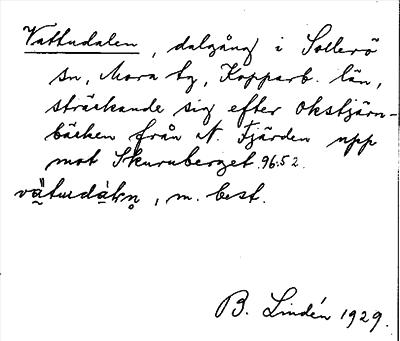 Vattudalen, dalgång i Sollerö
sn, Mora tg, Kopparb. län,
sträckande sig efter Okstjärn-
bäcken från N. Fjärden upp
mot Skuruberget. 96:52.
, m. best.
B. Lindén 1929.